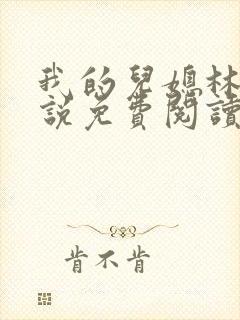 我的兒媳林
說免費閱讀
肯不肯